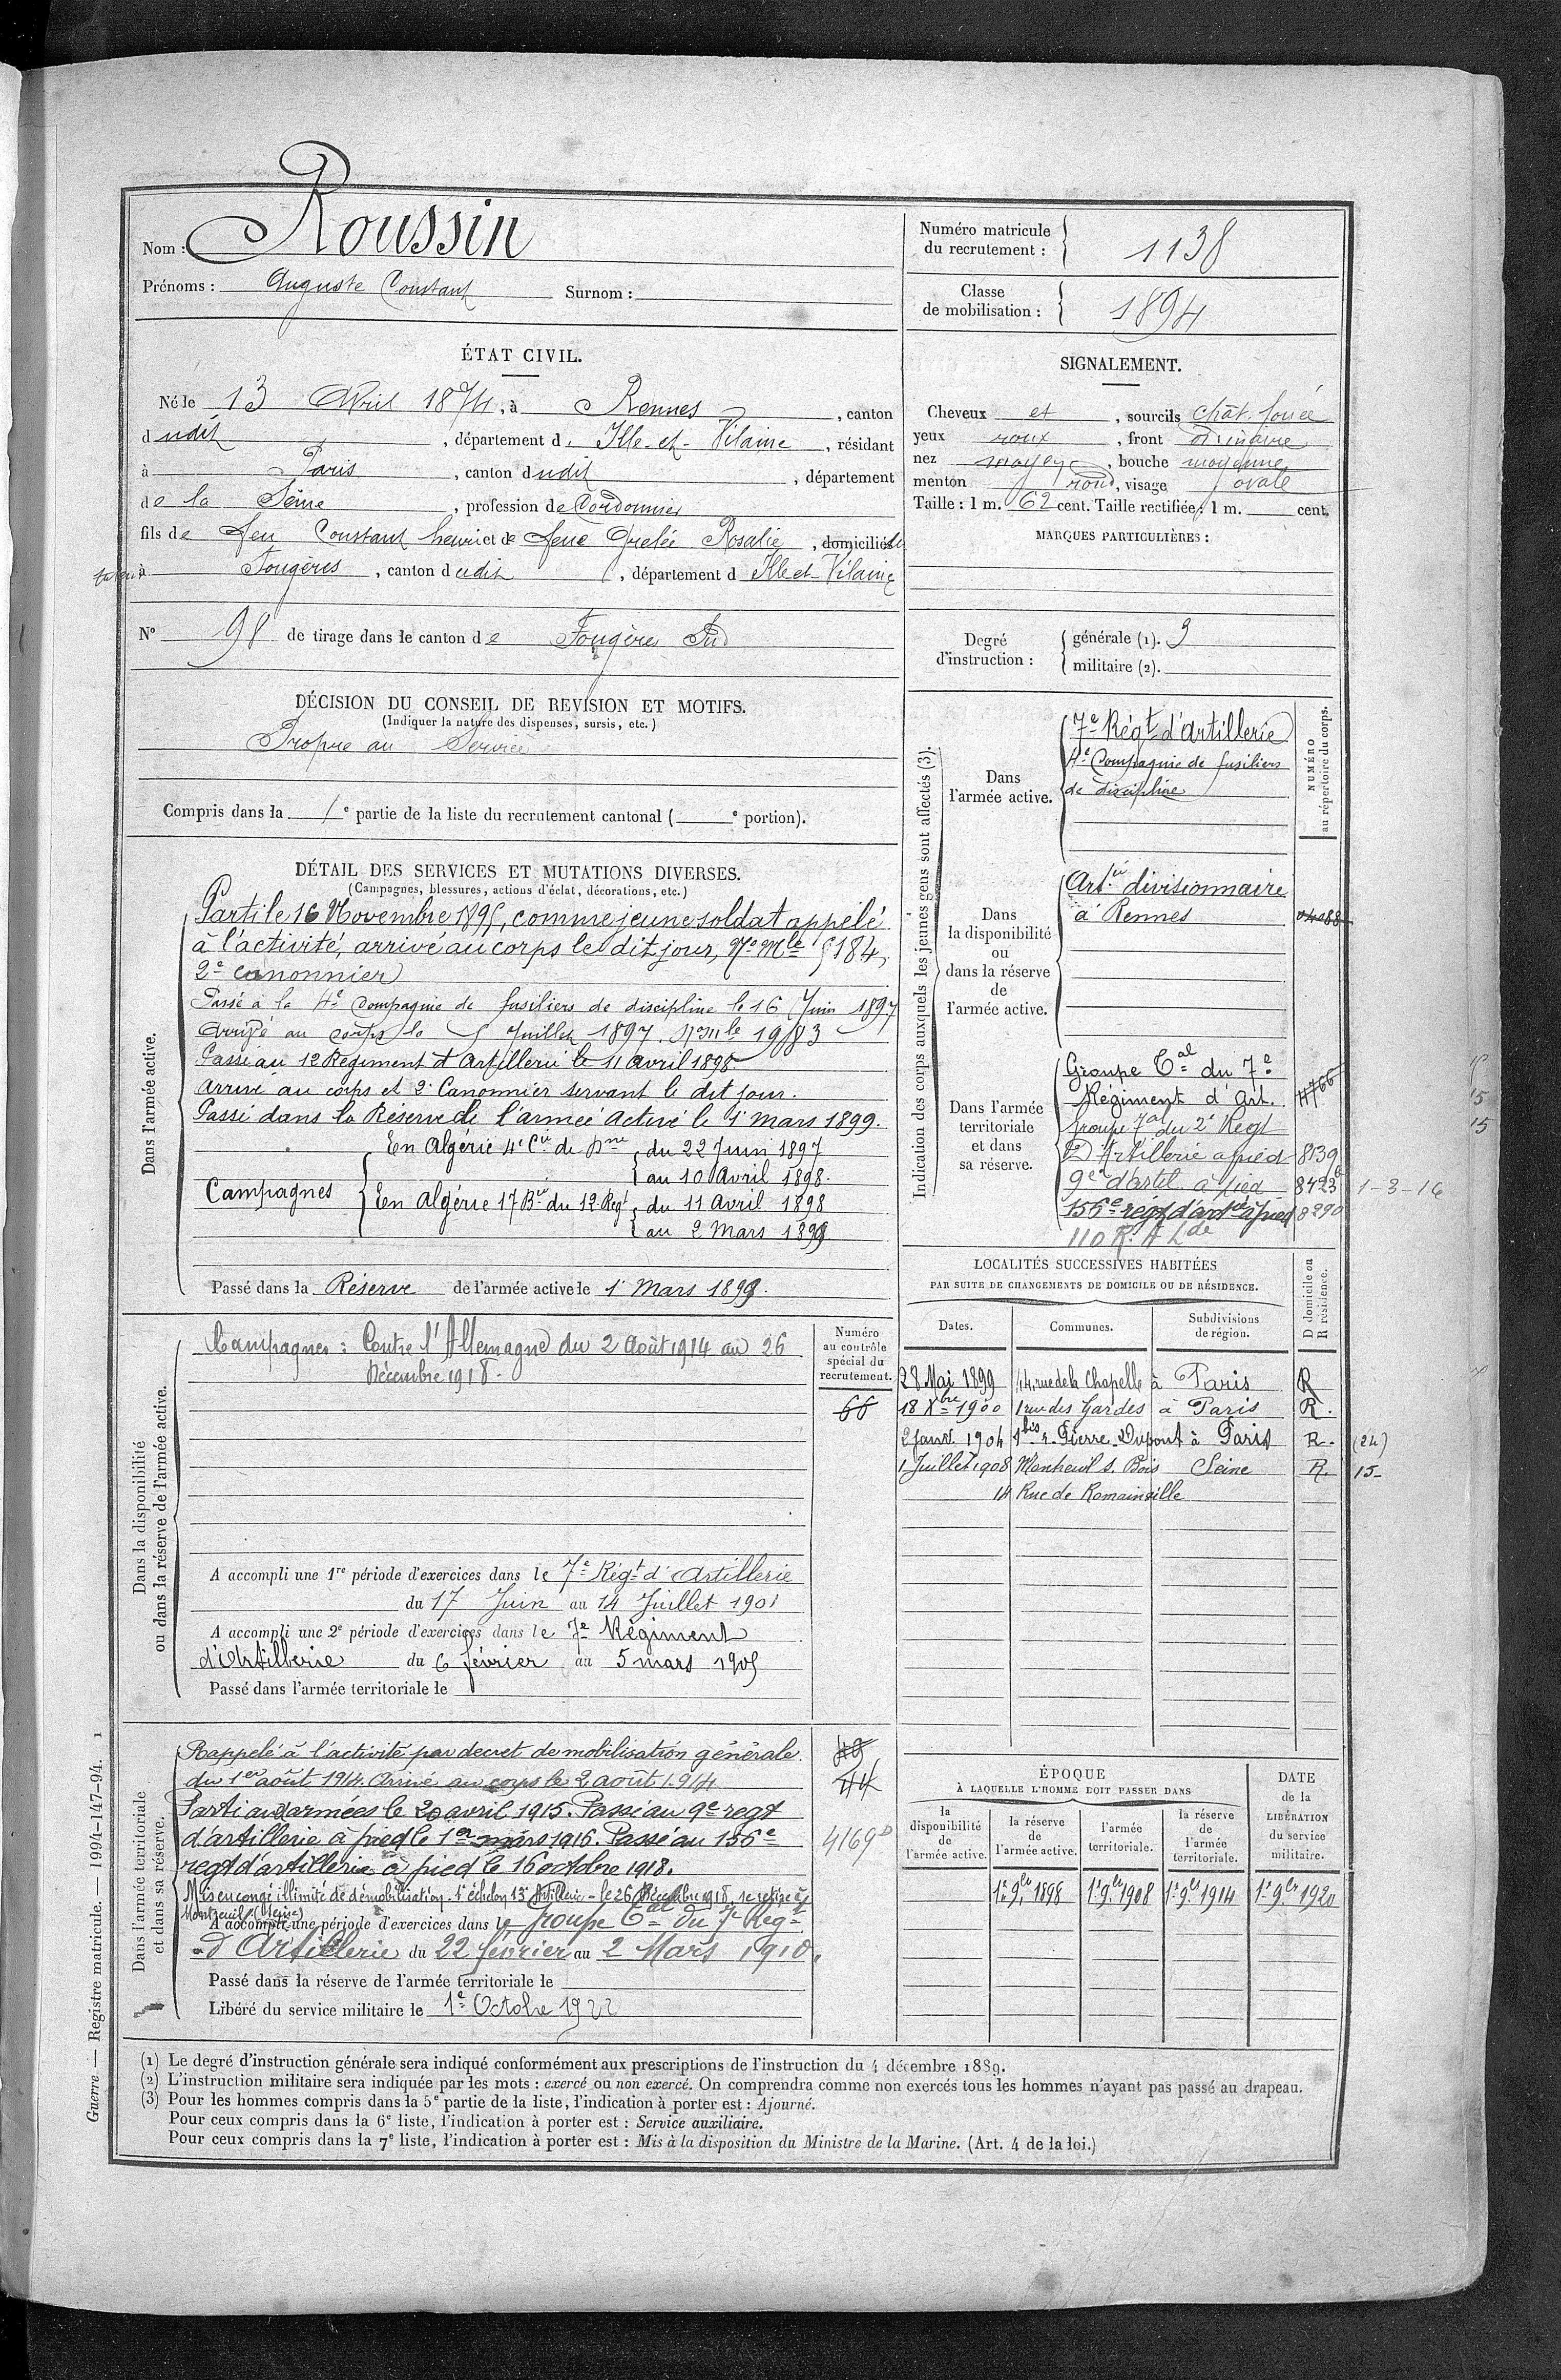 Nom : Roussin
Prénoms : Auguste Constant Surnom :
ÉTAT CIVIL.
Né le 13 Avril 1874, à Rennes, canton
dudit, département d'Ille-et-Vilaine, résidant
à Paris, canton dudit, département
de la Seine, profession de Cordonnier
fils de feu Constant henri et de feue Rosalie, domicilié
à Fougères, canton dudit, département d Ille et Vilaine
N° 98 de tirage dans le canton de Fougères Sud
DÉCISION DU CONSEIL DE REVISION ET MOTIFS.
(Indiquer la nature des dispenses, sursis, etc.)
Propre au Service
Compris dans la 1e partie de la liste du recrutement cantonal ( e portion).
DÉTAIL DES SERVICES ET MUTATIONS DIVERSES.
(Campagnes, blessures, actions d'éclat, décorations, etc.)
Dans l'armée active.
Parti le 16 Novembre 1895, comme jeune soldat appelé
à l'activité, arrivé au corps le dit jour, No Mle 5184,
2e canonnier
Passé à la 4e Compagnie de fusiliers de discipline le 16 Juin 1897
Arrivé au corps le 5 Juillet 1897. No Mle 1983
Passé au 12 Régiment d'Artillerie le 11 avril 1898
Arrivé au corps et 2e Canonnier servant le dit jour.
Passé dans la Réserve de l'armée Active le 1er Mars 1899.
En Algérie 4e Cie de Dine du 22 Juin 1897
au 10 Avril 1898.
Campagnes En Algérie 17 Bie du 12 Regt du 11 Avril 1898
au 2 Mars 1899
Passé dans la Réserve de l'armée active le 1er Mars 1899.
Dans la disponibilité
ou dans la réserve de l'armée active.
Campagnes : Contre l'Allemagne du 2 Août 1914 au 26
Décembre 1918.
A accompli une 1re période d'exercices dans le 7e Régt d'Artillerie
du 17 Juin au 14 Juillet 1901
A accompli une 2e période d'exercices dans le 7e Régiment
d'Artillerie du 6 février au 5 mars 1905
Passé dans l'armée territoriale le
Numéro
au contrôle
spécial du
recrutement.
66
Dans l'armée territoriale
et dans sa réserve.
Rappelé à l'activité par decret de mobilisation générale
du 1er août 1914. Arrivé au corps le 2 août 1914
Parti aux armées le 20 avril 1915. Passé au 9e regt
d'artillerie à pied le 1er mars 1916. Passé au 156e
regt d'artillerie à pied le 16 octobre 1918.
Mis en congé illimité de démobilisation 1er échelon 13e Artillerie - le 26 Décembre 1918, se retire à
Montreuil (Seine)
A accompli une période d'exercices dans le Groupe Tal du 7e Régt
d'Artillerie du 22 février au 2 Mars 1910.
Passé dans la réserve de l'armée territoriale le
Libéré du service militaire le 1e Octobre 1922
44
4169
Numéro matricule
du recrutement :
1138
Classe
de mobilisation :
1894
SIGNALEMENT.
Cheveux et, sourcils chât. foncé
yeux roux, front ordinaire
nez moyen, bouche moyenne
menton rond, visage ovale
Taille : 1 m. 62 cent. Taille rectifiée : 1 m. cent.
MARQUES PARTICULIÈRES :
Degré
d'instruction :
générale (1). 3
militaire (2).
Indication des corps auxquels les jeunes gens sont affectés (3).
NUMÉRO
au répertoire du corps.
Dans
l'armée active.
7e Régt d'Artillerie
4e Compagnie de fusiliers
de discipline
Dans
la disponibilité
ou
dans la réserve
de
l'armée active.
Artie divisionnaire
à Rennes
Dans l'armée
territoriale
et dans
sa réserve.
Groupe Tal du 7e
Régiment d'Art. 4766
Groupe Tal du 2e Regt
D'Artillerie à pied 8139
9e d'artil. à pied 8423 1-3-16
156e régt d'artie à pied 8290
110 R. A Lde
15
15
LOCALITÉS SUCCESSIVES HABITÉES
PAR SUITE DE CHANGEMENTS DE DOMICILE OU DE RÉSIDENCE.
Dates. Communes. Subdivisions de région. D domicile ou R résidence.
28 Mai 1899 14, rue de la Chapelle à Paris R
18 Xbre 1900 1 rue des Gardes à Paris R.
2 Janv. 1904 1bis r. Pierre Dupont à Paris R. (24)
1 Juillet 1908 Montreuil s. Bois Seine R. 15-
14 Rue de Romainville
ÉPOQUE
À LAQUELLE L'HOMME DOIT PASSER DANS
la disponibilité de l'armée active.
la réserve de l'armée active.
l'armée territoriale.
la réserve de l'armée territoriale.
DATE de la LIBÉRATION du service militaire.
1er 9bre 1898 1er 9bre 1908 1er 9bre 1914 1er 9bre 1920
(1) Le degré d'instruction générale sera indiqué conformément aux prescriptions de l'instruction du 4 décembre 1889.
(2) L'instruction militaire sera indiquée par les mots : exercé ou non exercé. On comprendra comme non exercés tous les hommes n'ayant pas passé au drapeau.
(3) Pour les hommes compris dans la 5e partie de la liste, l'indication à porter est : Ajourné.
Pour ceux compris dans la 6e liste, l'indication à porter est : Service auxiliaire.
Pour ceux compris dans la 7e liste, l'indication à porter est : Mis à la disposition du Ministre de la Marine. (Art. 4 de la loi.)
Guerre. — Registre matricule. — 1994-147-94. 1